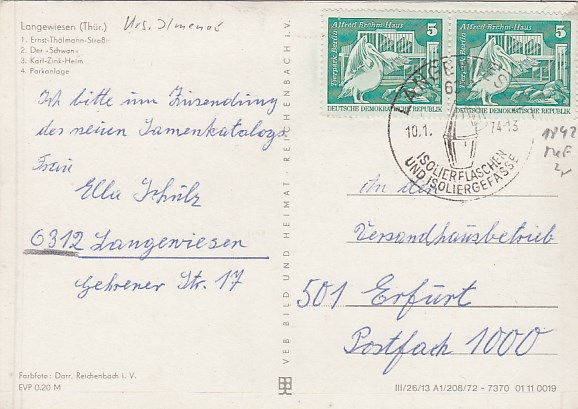 Langewiesen (Thür.)
1. Ernst-Thälmann-Straße
2. Der »Schwan«
3. Karl-Zink-Heim
4. Parkanlage
Krs. Ilmenau
Ich bitte um Zusendung
des neuen Samenkatalogs
Frau
Ella Schulz
6312 Langewiesen
Gehrener Str. 17
Farbfoto: Darr, Reichenbach i. V.
EVP 0.20 M
VEB BILD UND HEIMAT · REICHENBACH i. V.
Alfred Brehm-Haus 5
Tierpark Berlin
DEUTSCHE DEMOKRATISCHE REPUBLIK
Alfred Brehm-Haus 5
Tierpark Berlin
DEUTSCHE DEMOKRATISCHE REPUBLIK
10.1. 74-13
ISOLIERFLASCHEN
UND ISOLIERGEFÄSSE
1842
MeF
An den
Versandhausbetrieb
501 Erfurt
Postfach 1000
III/26/13 A1/208/72 – 7370 01 11 0019